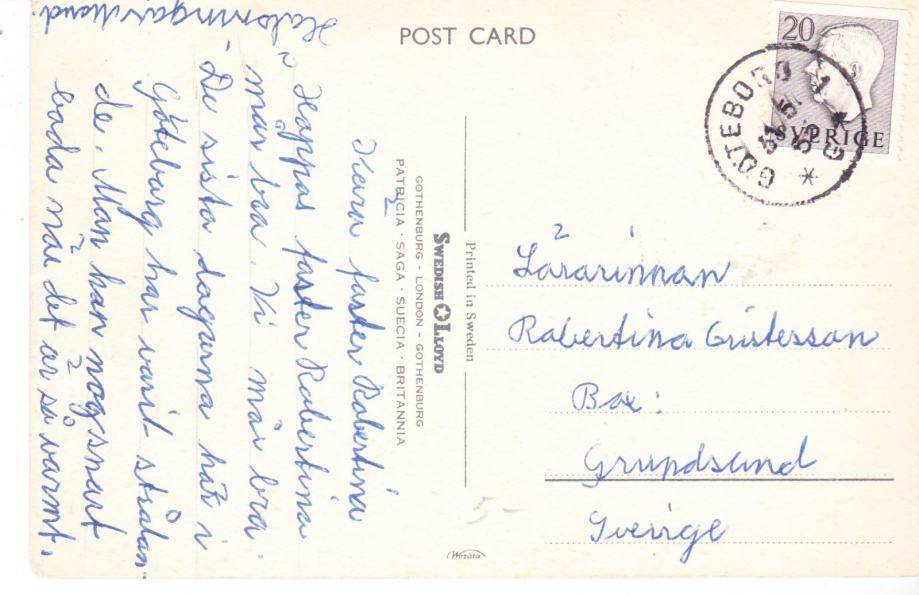 POST CARD
20
SVERIGE
GÖTEBORG
Kära faster Robertina
Hoppas faster Robertina
mår bra. Vi mår bra.
De sista dagarna här i
Göteborg har varit strålan-
de. Man kan nog snart
bada när det är så varmt.
PATRICIA · SAGA · SUECIA · BRITANNIA
GOTHENBURG - LONDON - GOTHENBURG
SWEDISH LLOYD
Printed in Sweden
Lärarinnan
Robertina Gristesson
Box:
Grundsund
Sverige
5-